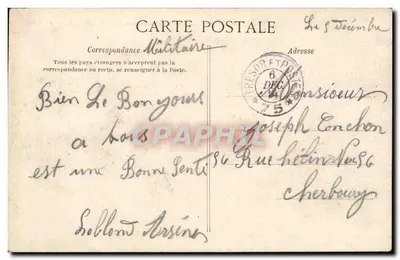 CARTE POSTALE
Le 5 Décembre
Correspondance Militaire
Adresse
Tous les pays étrangers n'acceptent pas la
correspondance au recto, se renseigner à la Poste.
TRESOR ET POSTES
6
DEC
14
* 75 *
Monsieur
Joseph Conchon
56 Rue hélin 56
Cherbourg
Bien Le Bonjours
a tous
est une Bonne Senti
Leblond Arsène
CARPHILA